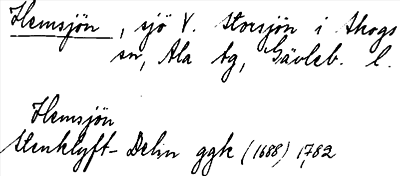 Hemsjön, sjö V. Storsjön i Skogs
sn, Ala tg, Gävleb. l.
Hemsjön
Stenklyft-Delin ggk (1688) 1782